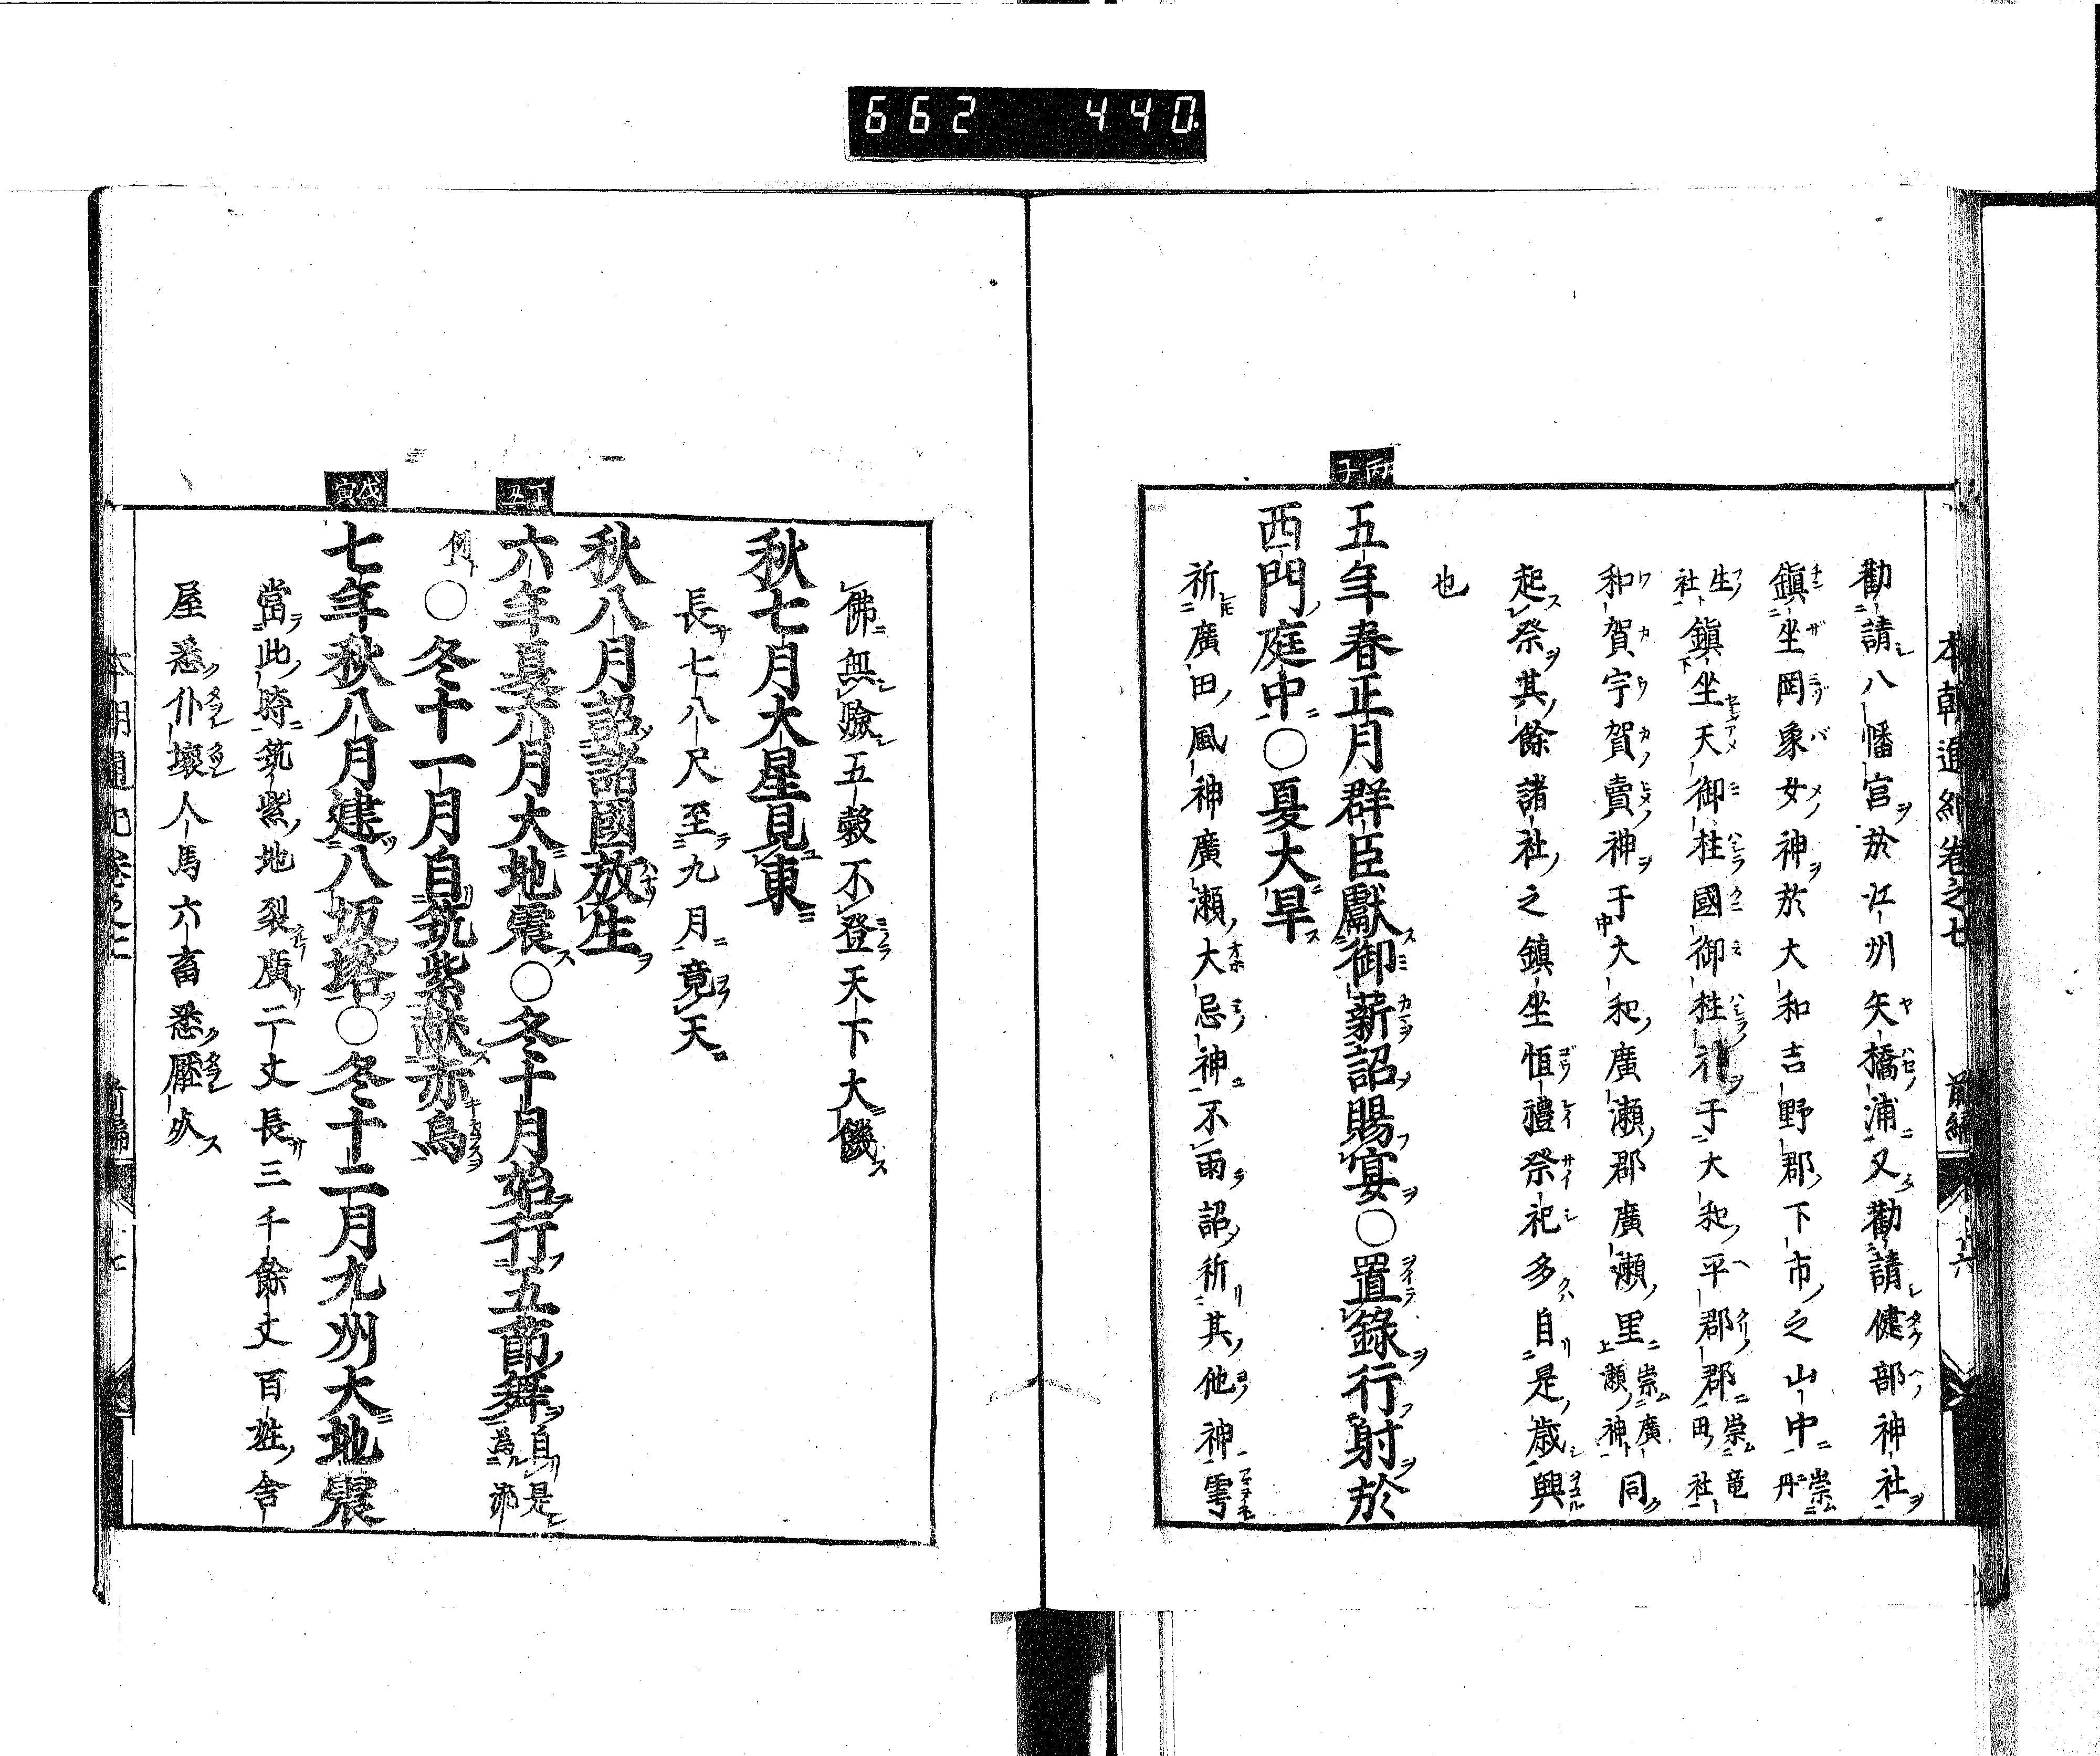 662 440
本朝通紀卷之七 前編 十六
勸請八幡宮於江州矢橋浦又勸請健部神社
鎮坐罔象女神於大和吉野郡下市之山中崇丹
生社鎮坐天御柱國御柱神于大和平郡郡崇竜田社
和賀宇賀賣神于大和廣瀬郡廣瀬里崇廣瀬神同
起祭其餘諸社之鎮坐恒禮祭祀多自是歳興
也
丙子
五年春正月群臣獻御薪詔賜宴○置錄行射於
西門庭中○夏大旱
祈廣田風神廣瀬大忌神不雨詔祈其他神雩
佛無驗五穀不登天下大饑
秋七月大星見東
長七八尺至九月竟天
秋八月詔諸國放生
丁丑
六年夏六月大地震○冬十月始行五節舞自是為流
例○冬十一月自筑紫献赤烏
戊寅
七年秋八月建八坂塔○冬十二月九州大地震
當此時筑紫地裂廣二丈長三千餘丈百姓舎
屋悉仆壞人馬六畜悉壓死
本朝通紀卷之七 前編 十七